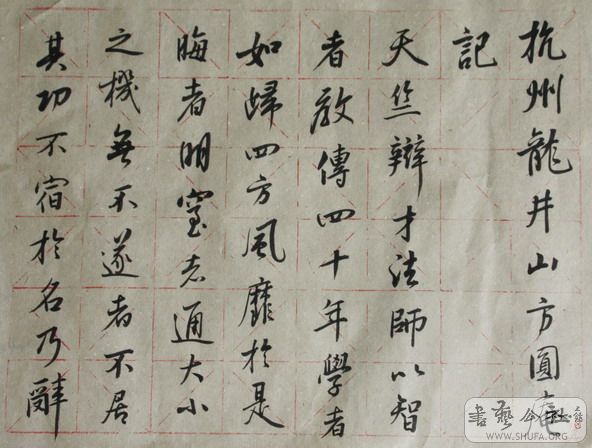 杭州龍井山方圓庵
記
天竺辯才法師以智
者教傳四十年學者
如歸四方風靡於是
晦者明窒者通大小
之機無不遂者不居
其功不宿於名乃辭
書藝公社
WWW.SHUFA.ORG